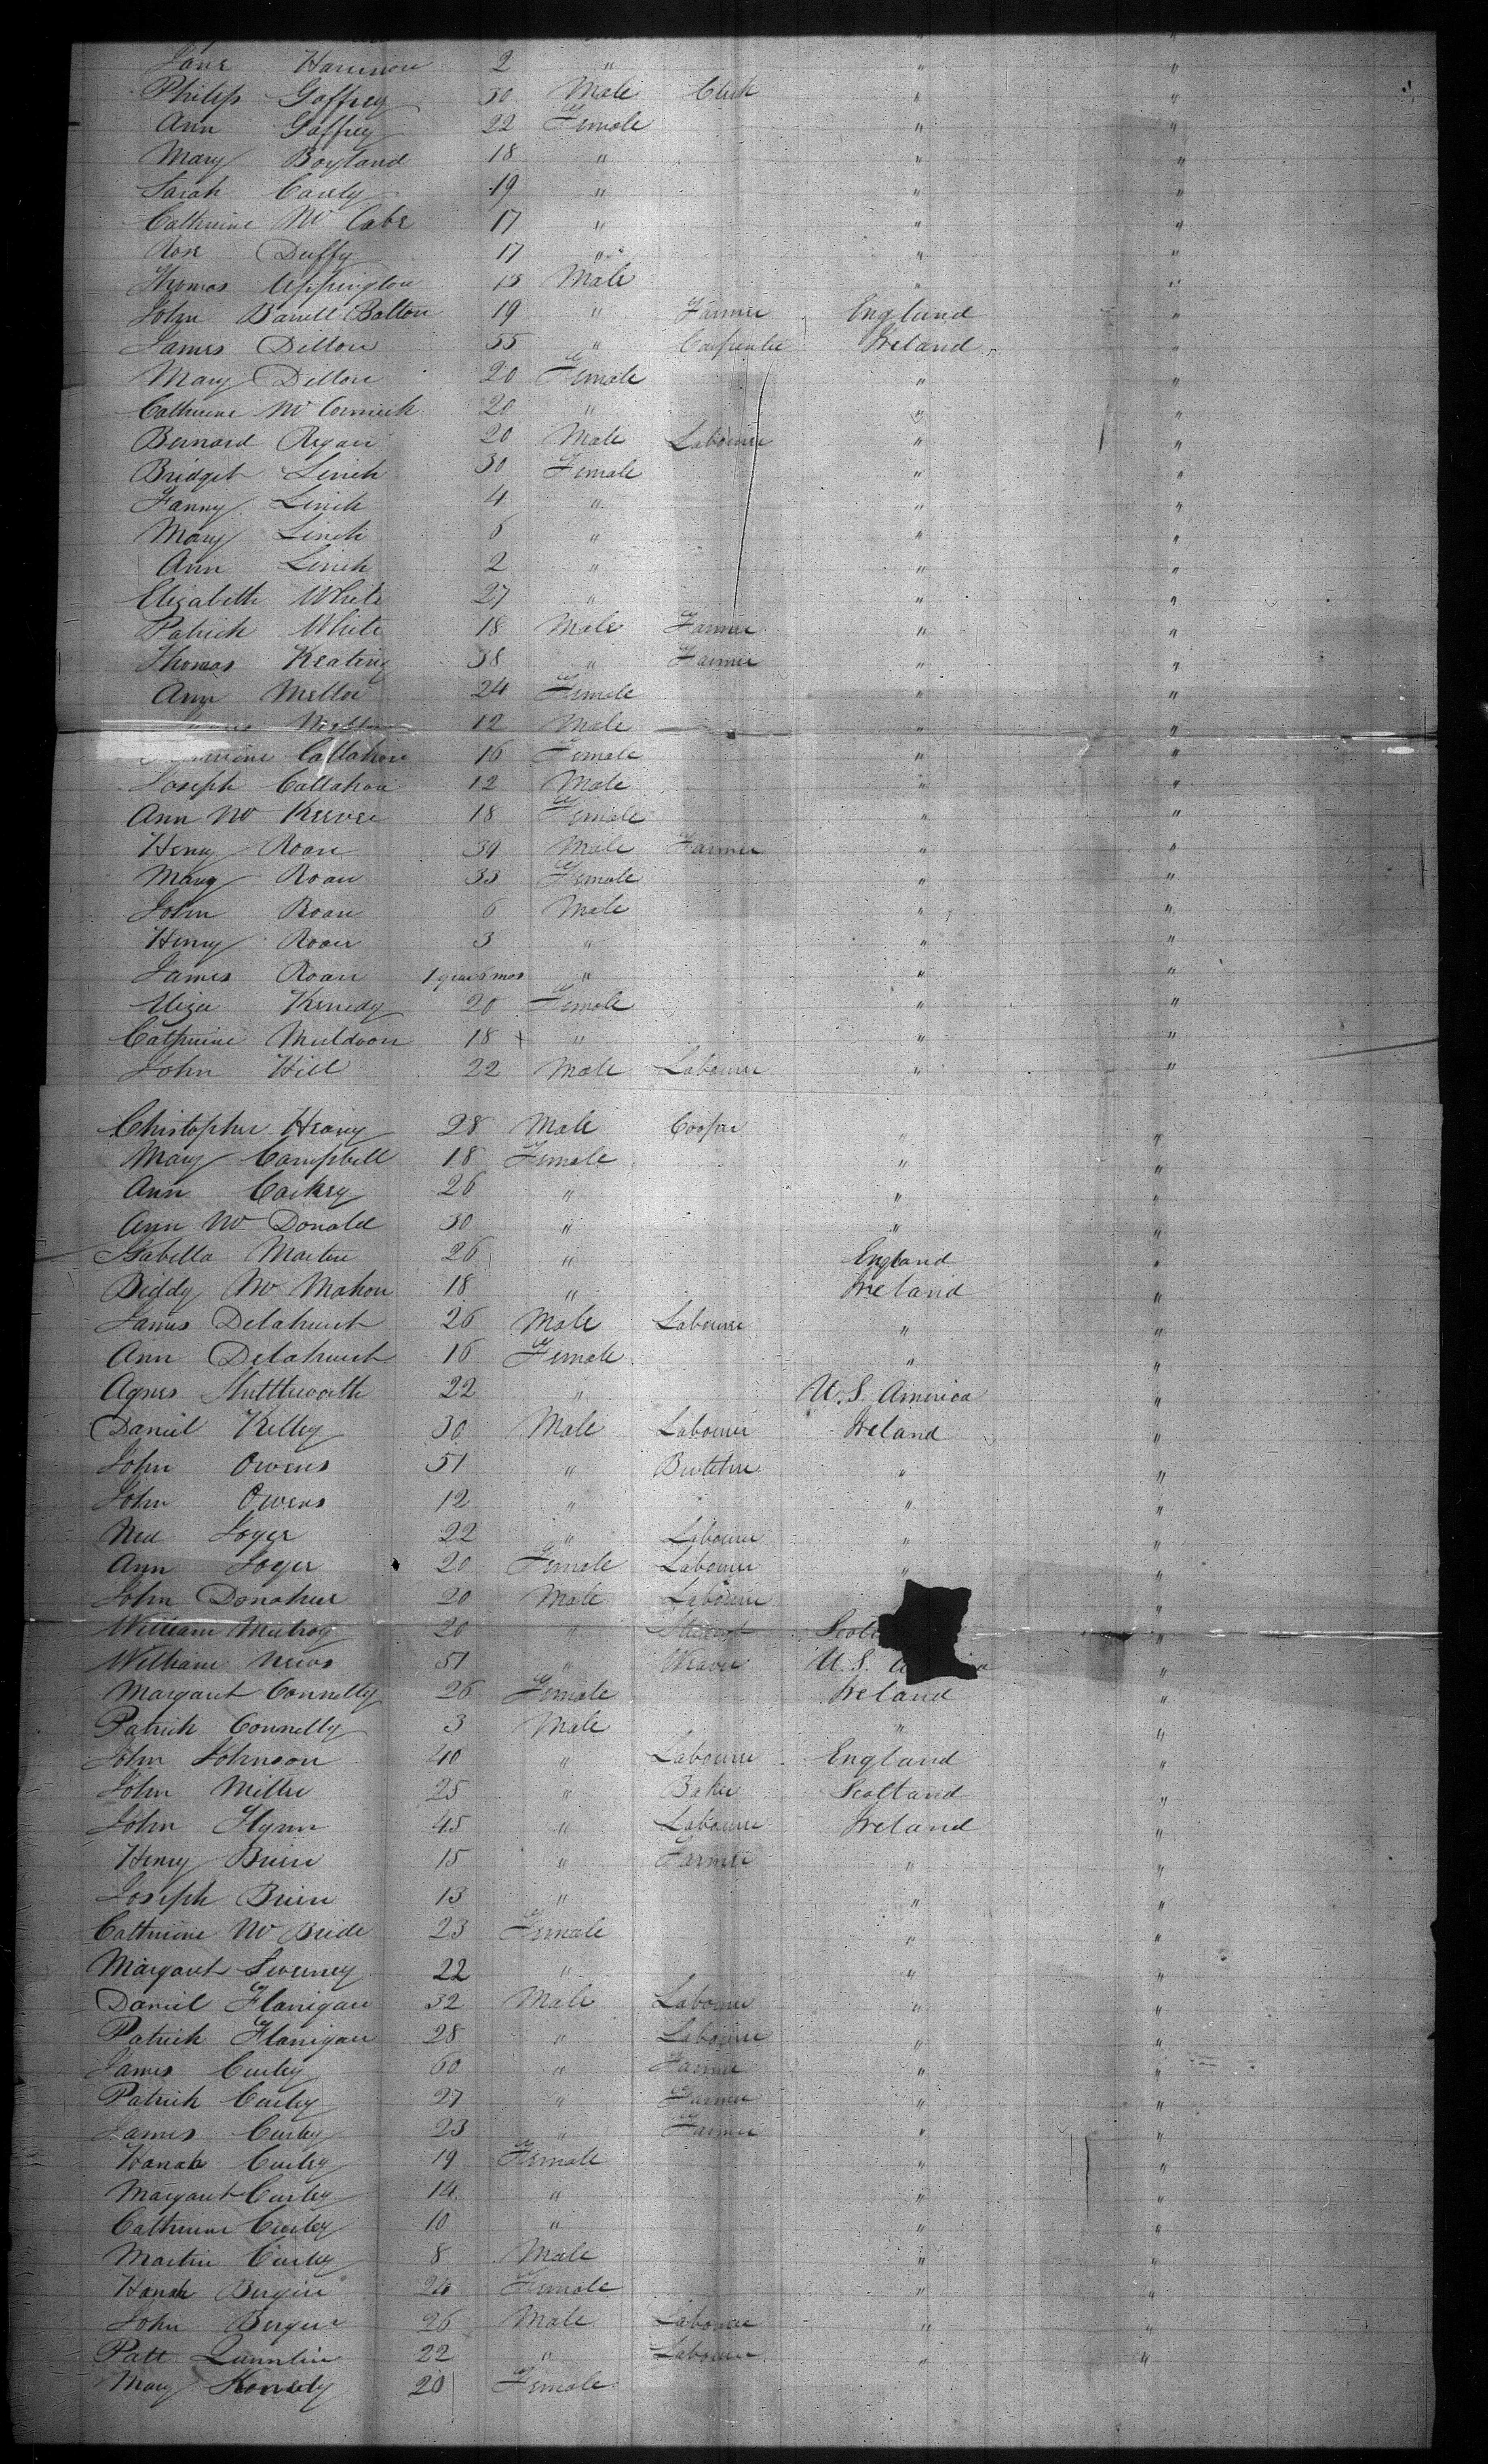 Jane Harrison 2 " " "
Philip Gaffrey 30 Male Clerk " "
Ann Gaffrey 22 Female " "
Mary Boyland 18 " " "
Sarah Carely 19 " " "
Catherine Mc Cabe 17 " " "
Rose Duffy 17 " " "
Thomas Uppington 13 Male " "
John Barrell Bolton 19 " Farmer England "
James Dillon 55 " Carpenter Ireland "
Mary Dillon 20 Female " "
Catherine Mc Cormick 20 " " "
Bernard Regan 20 Male Labourer " "
Bridget Linch 30 Female " "
Fanny Linch 4 " " "
Mary Linch 6 " " "
Ann Linch 2 " " "
Elizabeth White 27 " " "
Patrick White 18 Male Farmer " "
Thomas Keating 38 " Farmer " "
Ann Mellon 24 Female " "
12 Male " "
Callahan 16 Female " "
Joseph Callahan 12 Male " "
Ann Mc Keever 18 Female " "
Henry Roan 39 Male Farmer " "
Mary Roan 33 Female " "
John Roan 6 Male " "
Henry Roan 3 " " "
James Roan 1 year mos " " "
Eliza Kenedy 20 Female " "
Catherine Muldoon 18 " " "
John Hill 22 Male Labourer " "
Christopher Heany 28 Male Cooper " "
Mary Campbell 18 Female " "
Ann Caskey 26 " " "
Ann Mc Donald 30 " " "
Isabella Martin 26 " England "
Biddy Mc Mahon 18 " Ireland "
James Delahunt 26 Male Labourer " "
Ann Delahunt 16 Female " "
Agnes Shuttleworth 22 " U.S. America "
Daniel Kelley 30 Male Labourer Ireland "
John Owens 51 " Butcher " "
John Owens 12 " " "
Ned Joyer 22 " Labourer " "
Ann Joyer 20 Female Labourer " "
John Donahue 20 Male Labourer "
William Mulroy 20 " Student "
William News 51 " Weaver U.S. "
Margaret Connelly 26 Female Ireland "
Patrick Connelly 3 Male " "
John Johnson 40 " Labourer England "
John Miller 25 " Baker Scotland "
John Flynn 45 " Labourer Ireland "
Henry Brien 15 " Farmer " "
Joseph Brien 13 " " "
Catherine Mc Bride 23 Female " "
Margaret Sweeney 22 " " "
Daniel Flanigan 32 Male Labourer " "
Patrick Flanigan 28 " Labourer " "
James Curley 60 " Farmer " "
Patrick Curley 27 " Farmer " "
James Curley 23 " Farmer " "
Hanah Curley 19 Female " "
Margaret Curley 14 " " "
Catherine Curley 10 " " "
Martin Curley 8 Male " "
Hanah Bergin 24 Female " "
John Bergin 26 Male Labourer " "
Patt Quinlin 22 " Labourer " "
Mary Kenedy 20 Female